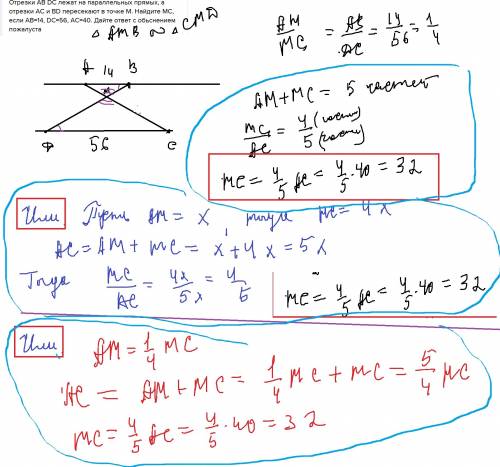 Отрезки AB DC лежат на параллельных прямых, а
отрезки AC и BD пересекают в точке M. Найдите MC,
если AB=14, DC=56, AC=40. Дайте ответ с обьснением
пожалуста
△ AMB ~ △ CMD
AM/MC = AB/DC = 14/56 = 1/4
A 14 B
M
D 56 C
AM+MC = 5 частей
MC/AC = 4 (части)/5 (части)
MC = 4/5 AC = 4/5 · 40 = 32
Или Пусть AM = x, тогда MC = 4x
AC = AM + MC = x + 4x = 5x
Тогда MC/AC = 4x/5x = 4/5
MC = 4/5 AC = 4/5 · 40 = 32
Или
AM = 1/4 MC
AC = AM + MC = 1/4 MC + MC = 5/4 MC
MC = 4/5 AC = 4/5 · 40 = 32